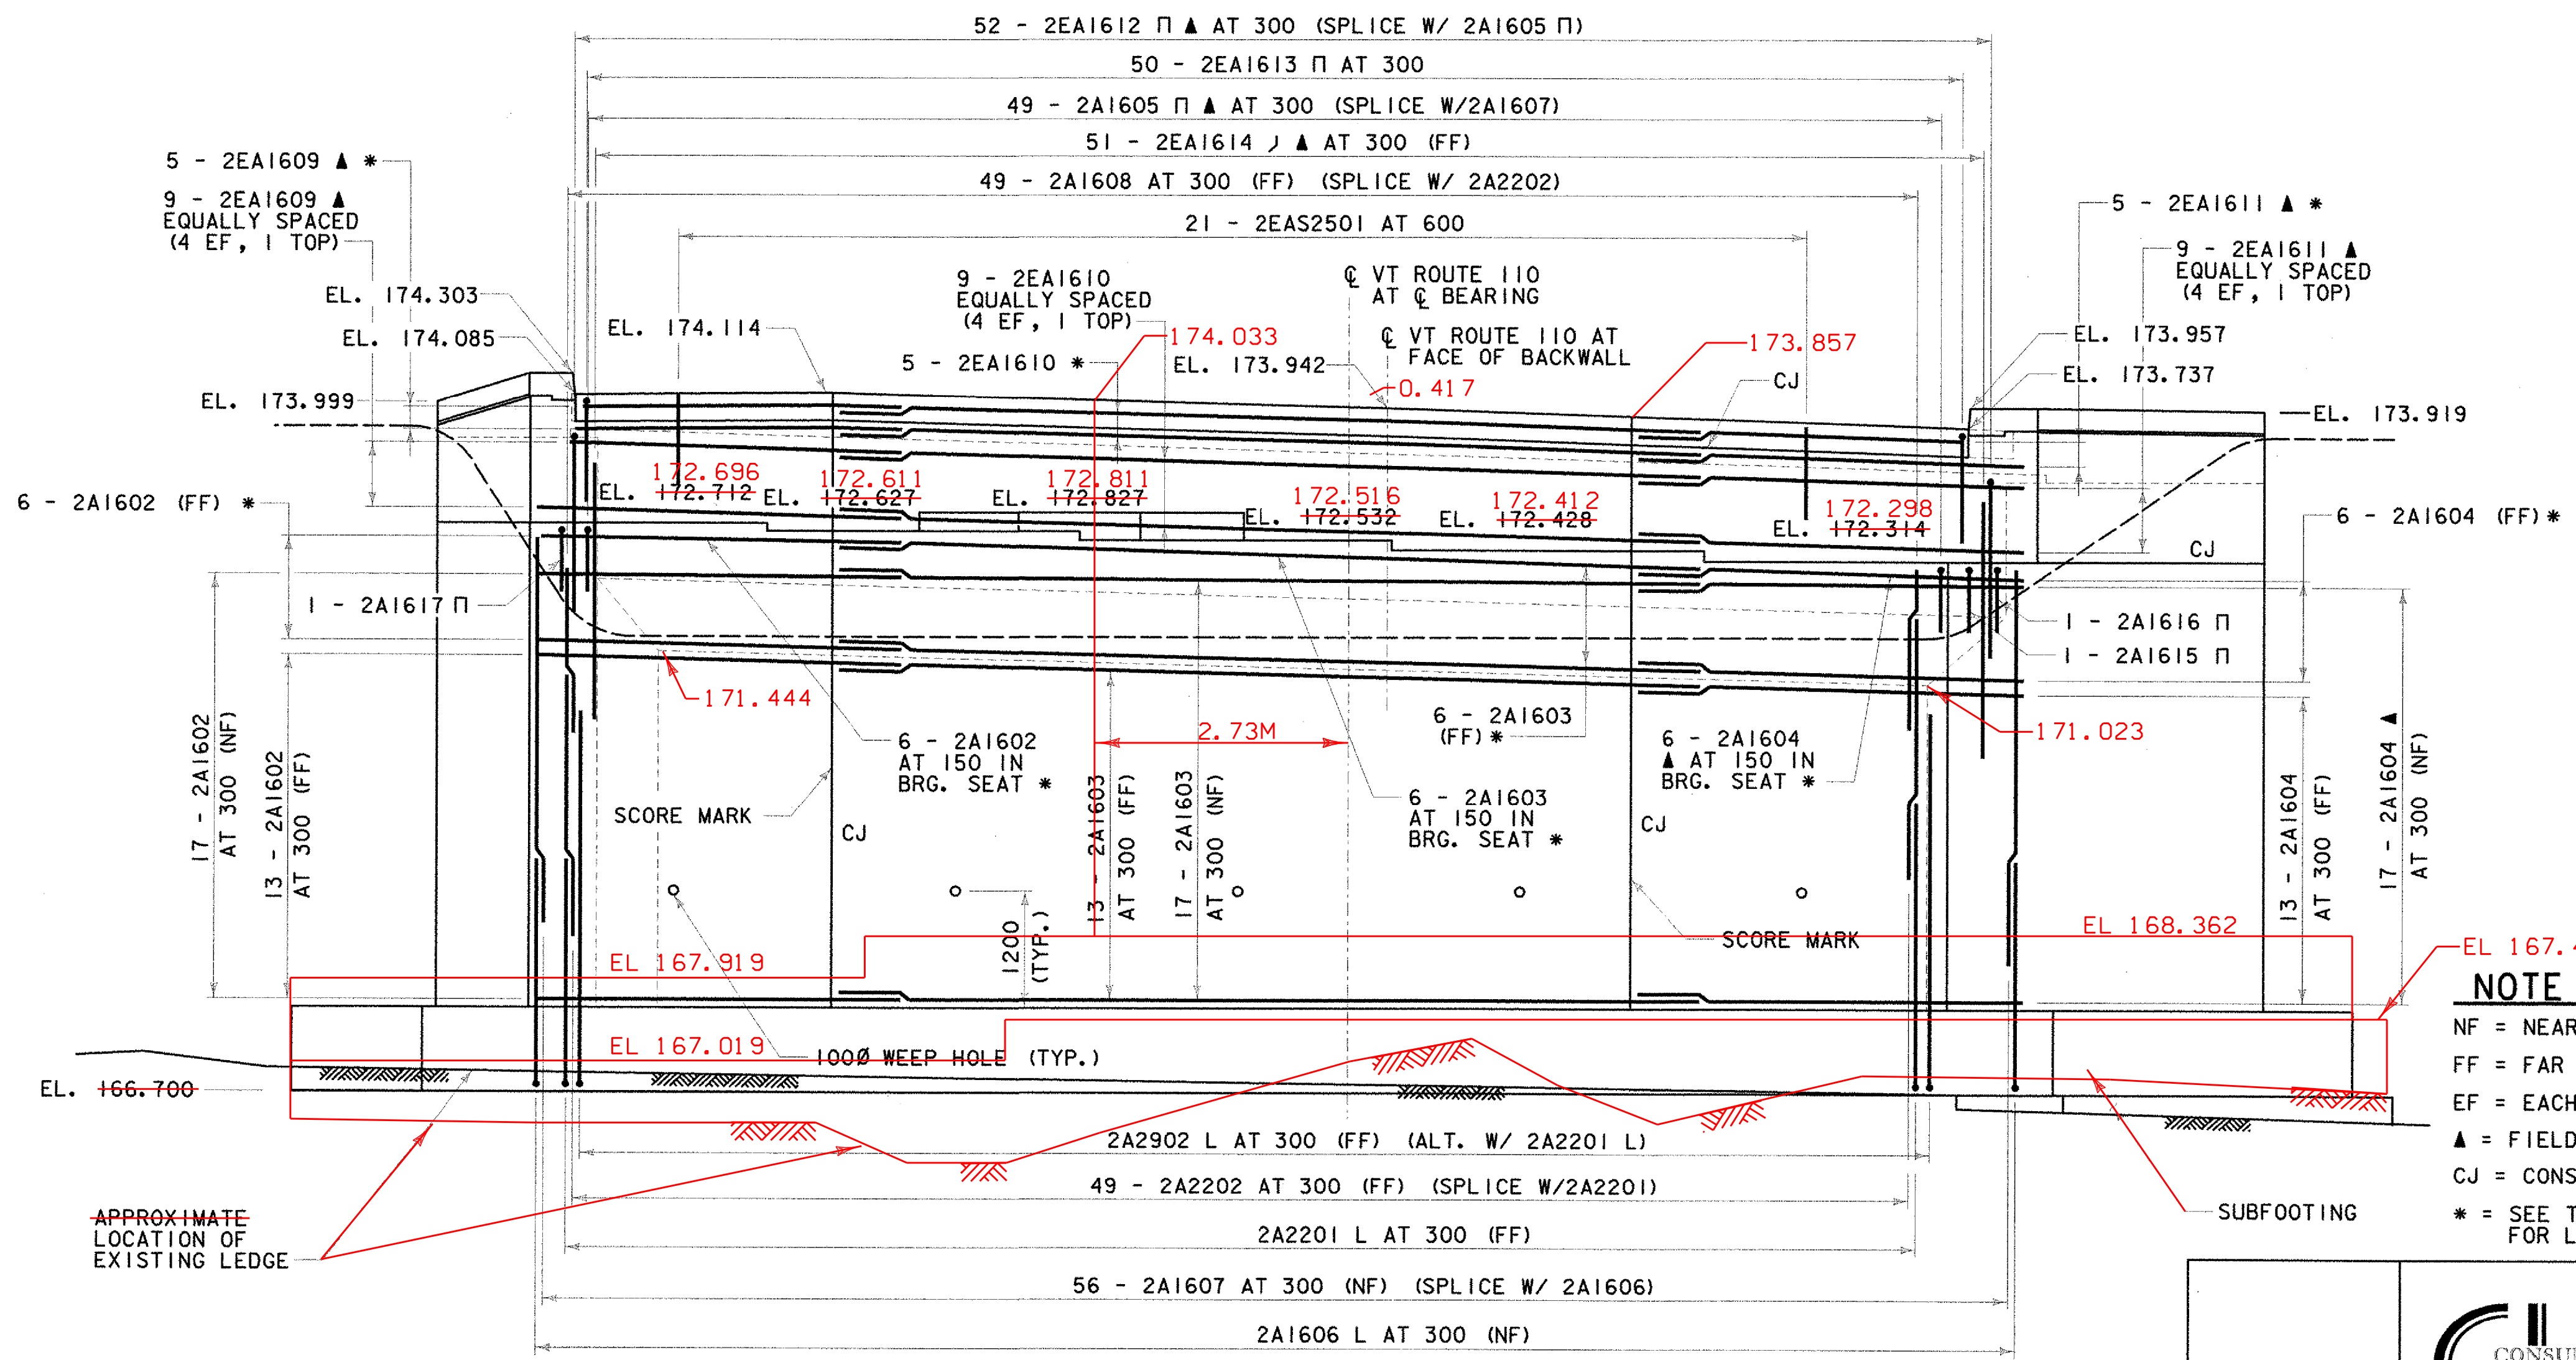 52 - 2EA1612 Π ▲ AT 300 (SPLICE W/ 2A1605 Π)
50 - 2EA1613 Π AT 300
49 - 2A1605 Π ▲ AT 300 (SPLICE W/2A1607)
51 - 2EA1614 ▲ AT 300 (FF)
49 - 2A1608 AT 300 (FF) (SPLICE W/ 2A2202)
21 - 2EAS2501 AT 600
5 - 2EA1609 ▲ *
9 - 2EA1609 ▲
EQUALLY SPACED
(4 EF, 1 TOP)
EL. 174.303
EL. 174.085
EL. 173.999
EL. 174.114
9 - 2EA1610
EQUALLY SPACED
(4 EF, 1 TOP)
5 - 2EA1610 *
174.033
EL. 173.942
℄ VT ROUTE 110
AT ℄ BEARING
℄ VT ROUTE 110 AT
FACE OF BACKWALL
0.417
173.857
CJ
5 - 2EA1611 ▲ *
9 - 2EA1611 ▲
EQUALLY SPACED
(4 EF, 1 TOP)
EL. 173.957
EL. 173.737
EL. 173.919
6 - 2A1602 (FF) *
172.696
EL. 172.712
172.611
EL. 172.627
172.811
EL. 172.827
172.516
EL. 172.532
172.412
EL. 172.428
172.298
EL. 172.314
6 - 2A1604 (FF) *
CJ
1 - 2A1617 Π
1 - 2A1616 Π
1 - 2A1615 Π
171.444
171.023
2.73M
17 - 2A1602
AT 300 (NF)
13 - 2A1602
AT 300 (FF)
6 - 2A1602
AT 150 IN
BRG. SEAT *
6 - 2A1603
(FF) *
6 - 2A1604
▲ AT 150 IN
BRG. SEAT *
6 - 2A1603
AT 150 IN
BRG. SEAT *
13 - 2A1603
AT 300 (FF)
17 - 2A1603
AT 300 (NF)
13 - 2A1604
AT 300 (FF)
17 - 2A1604 ▲
AT 300 (NF)
SCORE MARK
CJ
CJ
SCORE MARK
1200
(TYP.)
EL 167.919
EL 168.362
EL 167.019
100Ø WEEP HOLE (TYP.)
EL. 166.700
2A2902 L AT 300 (FF) (ALT. W/ 2A2201 L)
49 - 2A2202 AT 300 (FF) (SPLICE W/2A2201)
2A2201 L AT 300 (FF)
56 - 2A1607 AT 300 (NF) (SPLICE W/ 2A1606)
2A1606 L AT 300 (NF)
APPROXIMATE
LOCATION OF
EXISTING LEDGE
SUBFOOTING
EL 167.4
NOTE
NF = NEAR
FF = FAR
EF = EACH
▲ = FIELD
CJ = CONS
* = SEE T
FOR L
CONSU